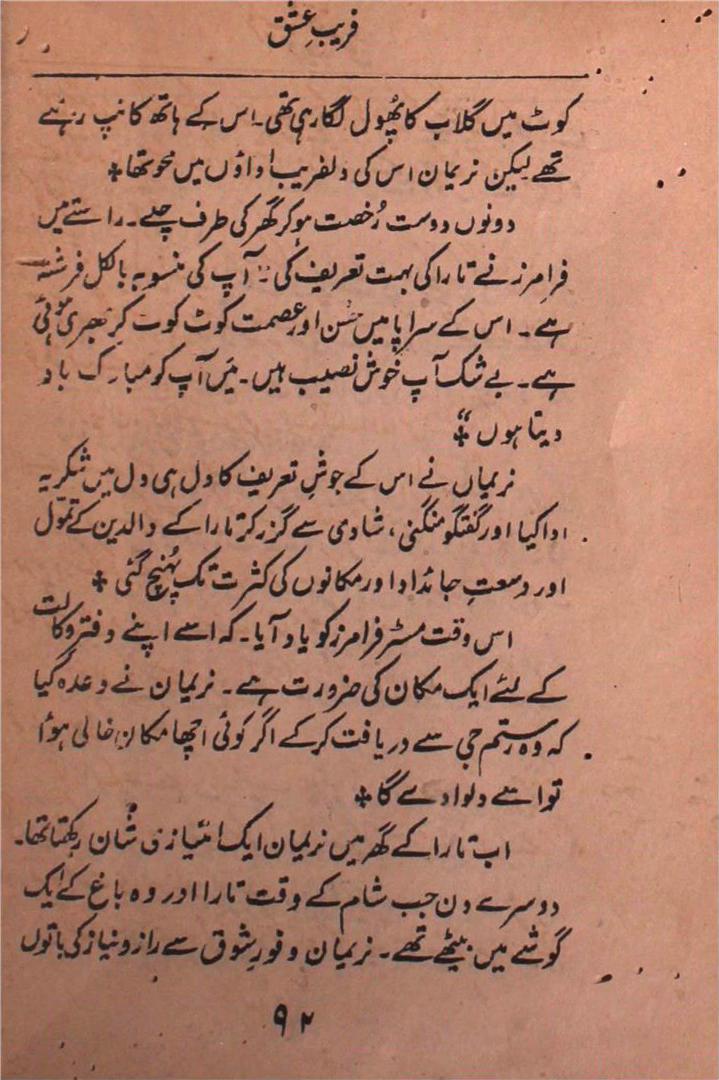 فریبِ عشق
کوٹ میں گلاب کا پھُول لگا رہی تھی۔ اس کے ہاتھ کانپ رہے
تھے لیکن نریمان اس کی دلفریب اداؤں میں محو تھا ٭
دونوں دوست رُخصت ہو کر گھر کی طرف چلے۔ راستے میں
فرامرز نے تارا کی بہت تعریف کی۔ "آپ کی منسوبہ بالکل فرشتہ
ہے۔ اس کے سراپا میں حُسن اور عصمت کوٹ کوٹ کر بھری ہوئی
ہے۔ بے شک آپ خوش نصیب ہیں۔ میَں آپ کو مبارک باد
دیتا ہوں" ٭
نریماں نے اس کے جوشِ تعریف کا دل ہی دل میں شکریہ
ادا کیا اور گفتگو منگنی، شادی سے گزر کر تارا کے والدین کے تموّل
اور وسعتِ جائداد اور مکانوں کی کثرت تک پہُنچ گئی ٭
اس وقت مسٹر فرامرز کو یاد آیا۔ کہ اسے اپنے دفتر وکالت
کے لئے ایک مکان کی ضرورت ہے۔ نریمان نے وعدہ کیا
کہ وہ رستم جی سے دریافت کر کے اگر کوئی اچھا مکان خالی ہوُا
تو اسے دلوا دے گا ٭
اب تارا کے گھر میں نریمان ایک امتیازی شان رکھتا تھا۔
دوسرے دن جب شام کے وقت تارا اور وہ باغ کے ایک
گوشے میں بیٹھے تھے۔ نریمان وفورِ شوق سے راز و نیاز کی باتوں
۹۲